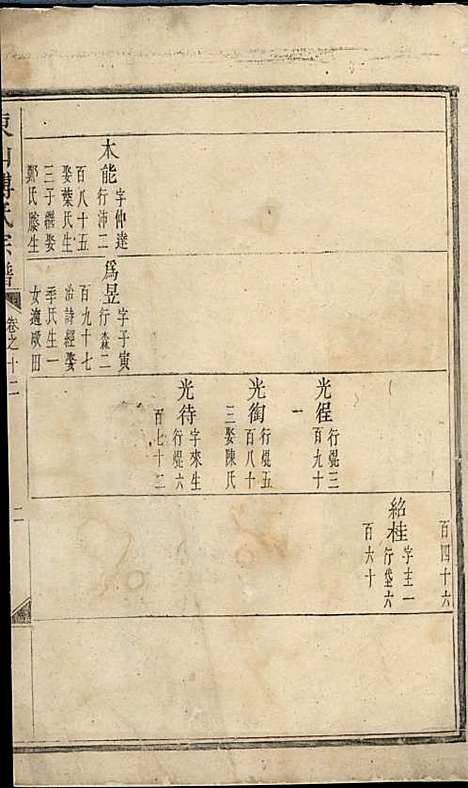 木能 字仲達
行沛二
百八十五
娶葉氏生
三子繼娶
鄭氏媵生
爲昱 字子寅
行森二
百九十七
治詩經娶
季氏生一
女適碓田
光徎 行焜三
百九十
一
光 行焜五
百八十
三娶陳氏
光待 字來生
行焜六
百七十二
百四十六
紹桂 字主一
行垈六
百六十
東山傅氏宗譜
卷之十二
二